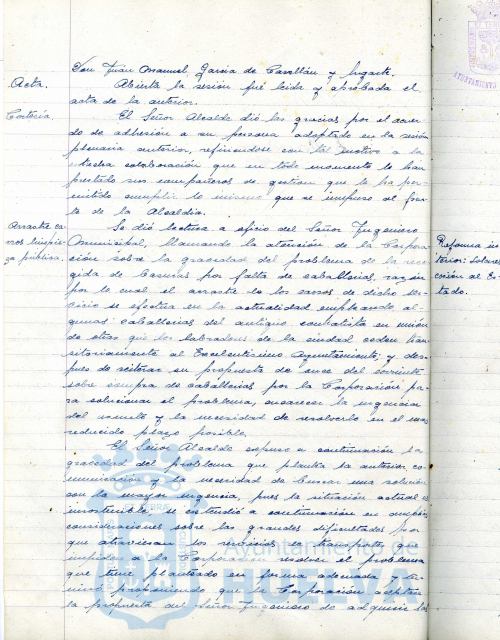 Don Juan Manuel García de Castellán y Ugarte.
Acta.
Abierta la sesión fué leida y aprobada el
acta de la anterior.
Cortesía.
El Señor Alcalde dió las gracias por el acuer-
do de adhesión a su persona adoptado en la sesión
plenaria anterior, refiriendose con tal motivo a la
estrecha colaboración que en todo momento le han
prestado sus compañeros de gestion que le ha per-
mitido cumplir lo mismo que se impuso al fren-
te de la Alcaldía.
Arrastre ca-
rros limpie-
za pública.
Se dió lectura a oficio del Señor Ingeniero
Municipal, llamando la atención de la Corpora-
ción sobre la gravedad del problema de la reco-
gida de basuras por falta de caballerías, razón
por la cual el arrastre de los carros de dicho ser-
vicio se efectua en la actualidad empleando al-
gunas caballerias del antiguo contratista en unión
de otras que los labradores de la ciudad ceden tran-
sitoriamente al Excelentísimo Ayuntamiento; y des-
pues de reiterar su propuesta de once del corriente
sobre compra de caballerías por la Corporación pa-
ra solucionar el problema, encarece la urgencia
del asunto y la necesidad de resolverlo en el mas
reducido plazo posible.
El Señor Alcalde expuso a continuación la
gravedad del problema que plantea la anterior co-
municación y la necesidad de buscar una solución
con la mayor urgencia, pues la situación actual es
insostenible; se extendió a continuación en
consideraciones sobre las grandes dificultades por
que atraviesan los servicios de transporte, que
impide a la Corporación resolver el problema
que tiene planteado en forma adecuada y
proponiendo que la Corporación acepte
la propuesta del Señor Ingeniero de adquirir
Reforma in-
terior: Solares
cesión al Es-
tado.
AYUNTAMIENTO
Ayuntamiento de
HUELVA